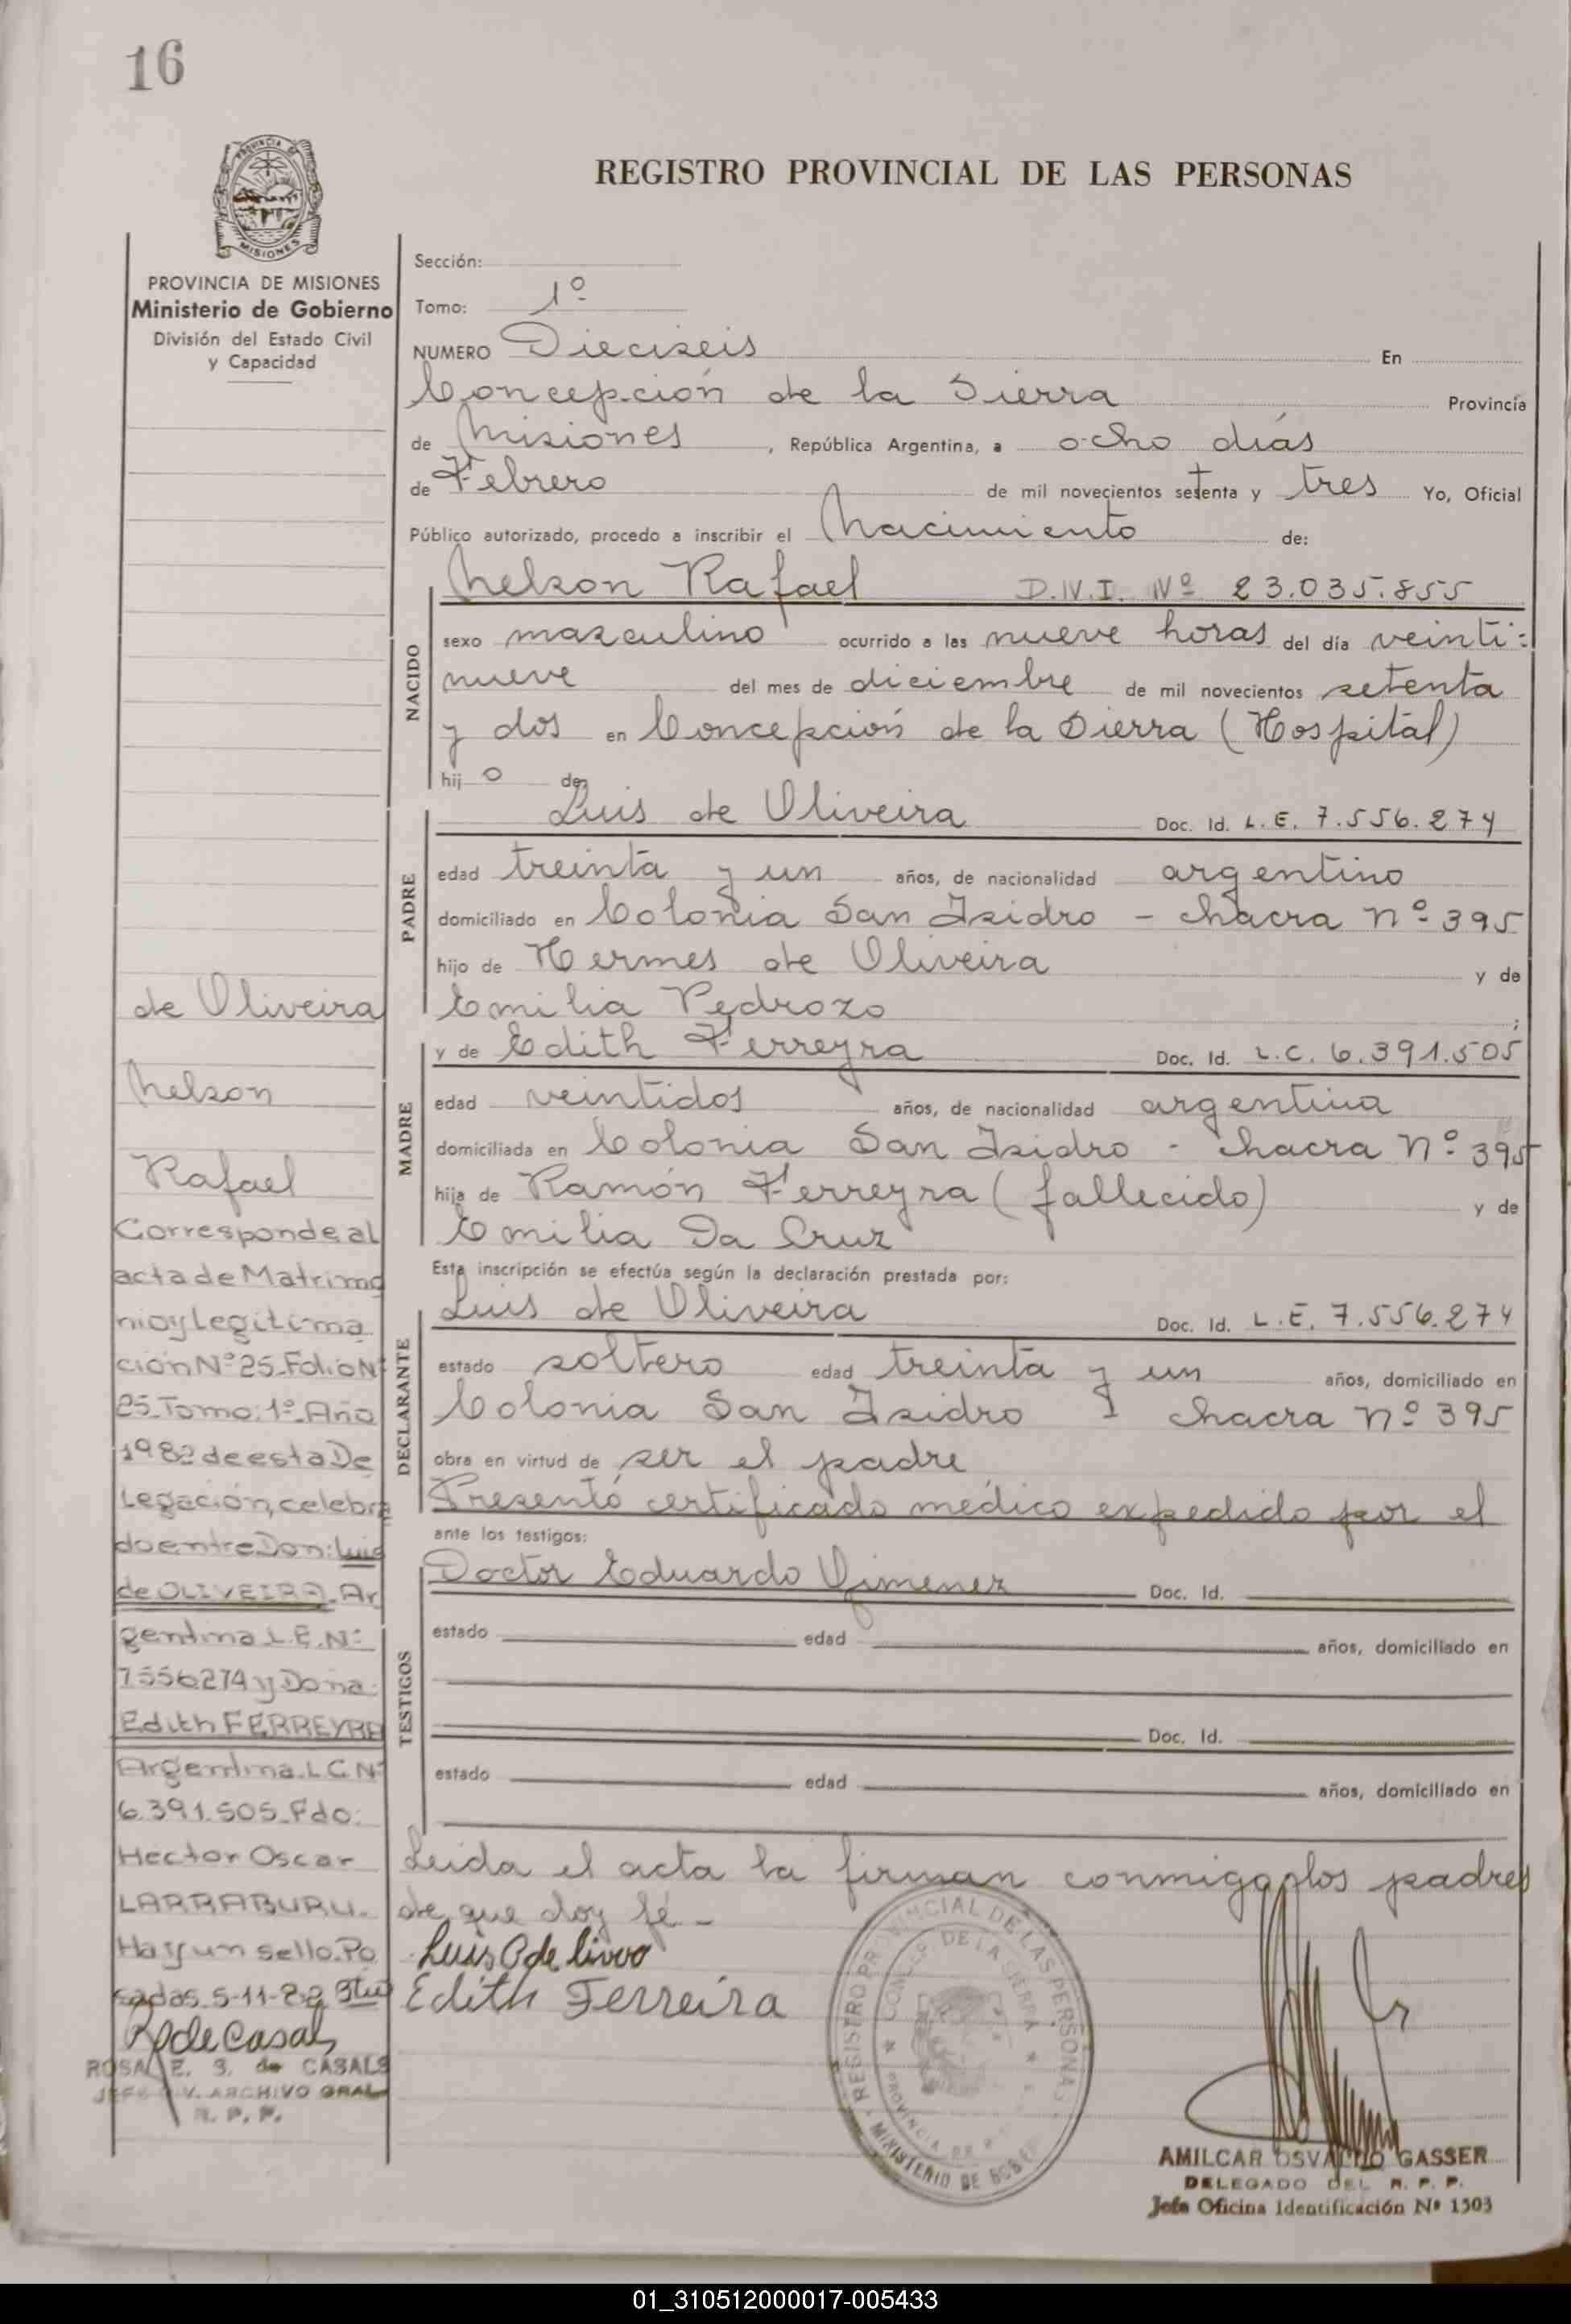 16
REGISTRO PROVINCIAL DE LAS PERSONAS
PROVINCIA DE MISIONES
MISIONES
PROVINCIA DE MISIONES
Ministerio de Gobierno
División del Estado Civil
y Capacidad
Sección:
Tomo: 1º
NUMERO Dieciseis En
Concepción de la Sierra Provincia
de Misiones, República Argentina, a ocho días
de Febrero de mil novecientos setenta y tres Yo, Oficial
Público autorizado, procedo a inscribir el Nacimiento de:
NACIDO
Nelson Rafael D.N.I. Nº 23.035.855
sexo masculino ocurrido a las nueve horas del día veinti-
nueve del mes de diciembre de mil novecientos setenta
y dos en Concepción de la Sierra (Hospital)
hijo de
PADRE
Luis de Oliveira Doc. Id. L.E. 7.556.274
edad treinta y un años, de nacionalidad argentino
domiciliado en Colonia San Isidro - chacra nº 395
hijo de Hermes de Oliveira y de
Emilia Pedrozo ;
MADRE
y de Edith Ferreyra Doc. Id. L.C. 6.391.505
edad veintidos años, de nacionalidad argentina
domiciliada en Colonia San Isidro - chacra nº 395
hija de Ramón Ferreyra (fallecido) y de
Emilia Da Cruz
Esta inscripción se efectúa según la declaración prestada por:
DECLARANTE
Luis de Oliveira Doc. Id. L.E. 7.556.274
estado soltero edad treinta y un años, domiciliado en
Colonia San Isidro - chacra nº 395
obra en virtud de ser el padre
Presentó certificado médico expedido por el
ante los testigos:
TESTIGOS
Doctor Eduardo Gimenez Doc. Id.
estado edad años, domiciliado en
Doc. Id.
estado edad años, domiciliado en
Leida el acta la firman conmigo los padres
de que doy fé -
Luis
Edith Ferreira
de Oliveira
Nelson
Rafael
Corresponde al
acta de Matrimo
nio y Legitima
ción Nº 25 Folio Nº
25 Tomo: 1º Año
1982 de esta De
legación, celebra
do entre Don: Luis
de OLIVEIRA. Ar
gentino L.E. Nº
7556274 y Doña
Edith FERREYRA
Argentina L.C. Nº
6.391.505. Fdo:
Hector Oscar
LARRABURU.-
Hay un sello. Po
sadas 5-11-82
R de Casals
ROSA E. S. de CASALS
JEFE DIV. ARCHIVO GRAL
R. P. P.
REGISTRO PROVINCIAL DE LAS PERSONAS
MINISTERIO DE GOBIERNO
CONCEP. DE LA SIERRA
PROVINCIA DE
AMILCAR OSVALDO GASSER
DELEGADO DEL R. P. P.
Jefe Oficina Identificación Nº 1503
01_310512000017-005433